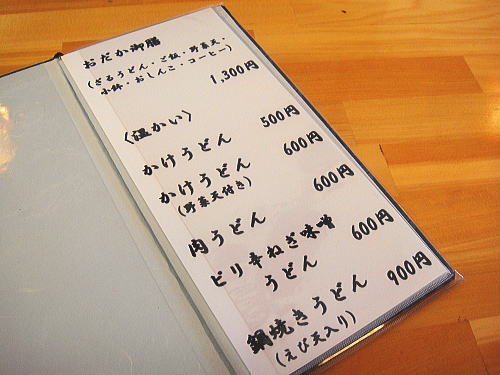 おだか御膳
(ざるうどん・ご飯・野菜天・
小鉢・おしんこ・コーヒー)
1,300円
〈温かい〉
かけうどん 500円
かけうどん 600円
(野菜天付き)
肉うどん 600円
ピリ辛ねぎ味噌
うどん 600円
鍋焼きうどん 900円
(えび天入り)